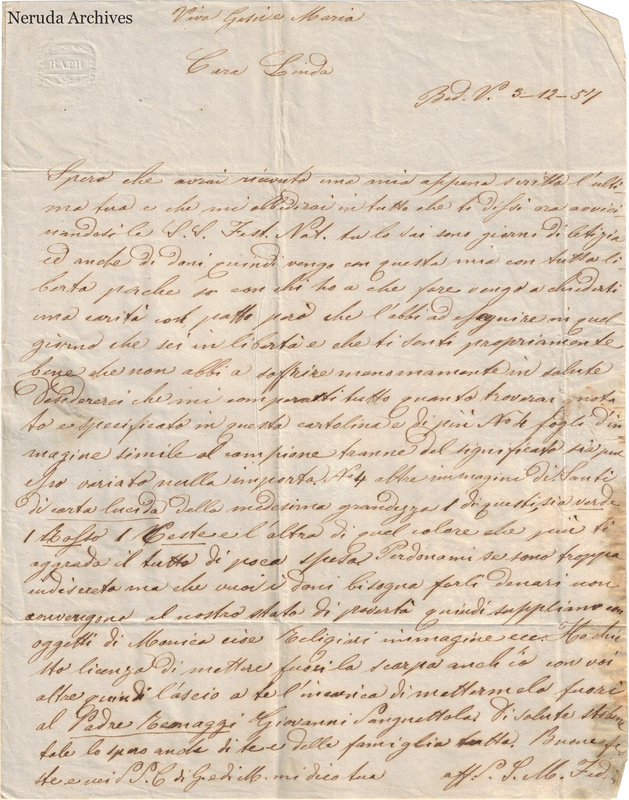 Neruda Archives
Viva Gesù e Maria
BATH
Cara Linda
Bad. V. 3-12-54
Spero che avrai ricevuto una mia appena scritta l'ulti
ma tua e che mi in tutto che ti dissi ora avvici
nandosi le S.S. Fest. Nat. tu lo sai sono giorni di letizia
ed anche di doni, quindi vengo con questa mia con tutta li
berta perche so con chi ho a che fare vengo a chiederti
una carità con patto però che l'abbi ad eseguire in quel
giorno che sei in libertà e che ti senti propriamente
bene che non abbi a soffrire menomamente in salute
Desidererei che mi comperassi tutto quanto troverai nota
to e specificato in questa cartolina e di più No 4 fogli d'im
magine simile al campione tranne del significato sia pu
re variato nulla importa, No 4 altre immagini di Santi
di carta lucida della medesima grandezza 1 di questi sia verde
1 Rosso 1 Celeste e l'altra di quel colore che più ti
aggrada il tutto di poca spesa. Perdonami se sono troppa
indiscreta ma che vuoi i doni bisogna farli denari non
convengono al nostro stato di povertà quindi suppliamo con
oggetti di Monica cioe Religiosi immagine ecc. Ho chie
sto licenza di mettere fuori la scarpa anch'io con voi
altre quindi lascio a te l'incarica di mettermela fuori
al Padre Remaggi Giovanni Di salute
tale lo spero anche di te e della famiglia tutta. Buone fe
ste e nei S.S. C. di G. e di M. mi dico tua aff. S. S. M. Fed.